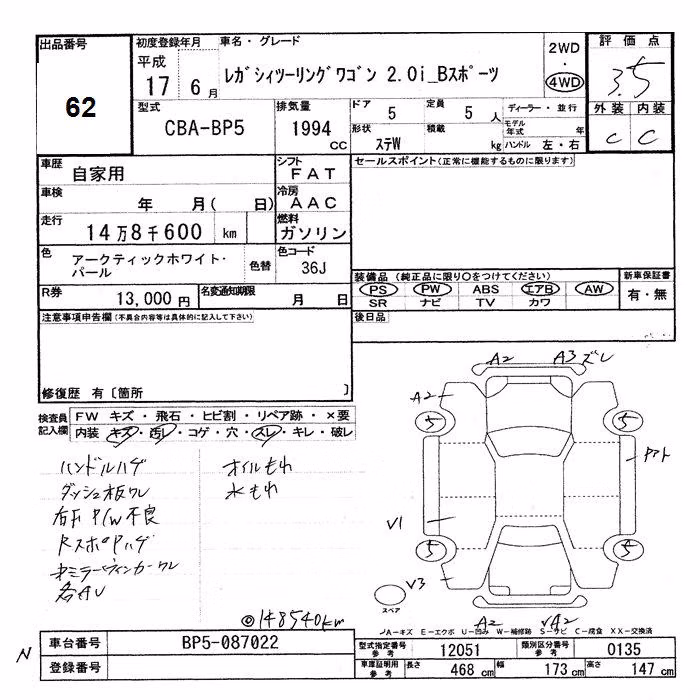 出品番号 初度登録年月 車名・グレード 2WD 評価点
平成 ・
62 17 6月 レガシィツーリングワゴン 2.0i_Bスポーツ 4WD 3.5
型式 排気量 ドア 5 定員 5 人 ディーラー・並行 外装 内装
CBA-BP5 1994 CC モデル年式 年 C C
形状 ステW 積載 kg ハンドル 左・右
車歴 自家用 シフト FAT セールスポイント(正常に機能するものに限ります)
車検 年 月( 日) 冷房 AAC
走行 14万8千600 km 燃料 ガソリン
色 アークティックホワイト・パール 色替 色コード 36J
装備品 (純正品に限り○をつけてください) 新車保証書
R券 13,000円 名変通知期限 月 日
PS PW ABS エアB AW 有・無
SR ナビ TV カワ
注意事項申告欄(不具合内容等は具体的に記入して下さい) 後日品
修復歴 有〔箇所 〕
検査員記入欄 FW キズ・飛石・ヒビ割・リペア跡・×要
内装 キズ・汚レ・コゲ・穴・スレ・キレ・破レ
ハンドルハゲ オイルもれ
ダッシュ板ワレ 水もれ
右F P/W不良
RスポPハゲ
ミラーウィンカーワレ
各AU
◎148540km
A2 A3 ズレ
A2
5 5
V1
5 5
V3
スペア
A2 A2
A-キズ E-エクボ U-凹み W-補修跡 S-サビ C-腐食 XX-交換済
N 車台番号 BP5-087022 型式指定番号 参考 12051 類別区分番号 参考 0135
登録番号 車庫証明用 参考 長さ 468 cm 幅 173 cm 高さ 147 cm